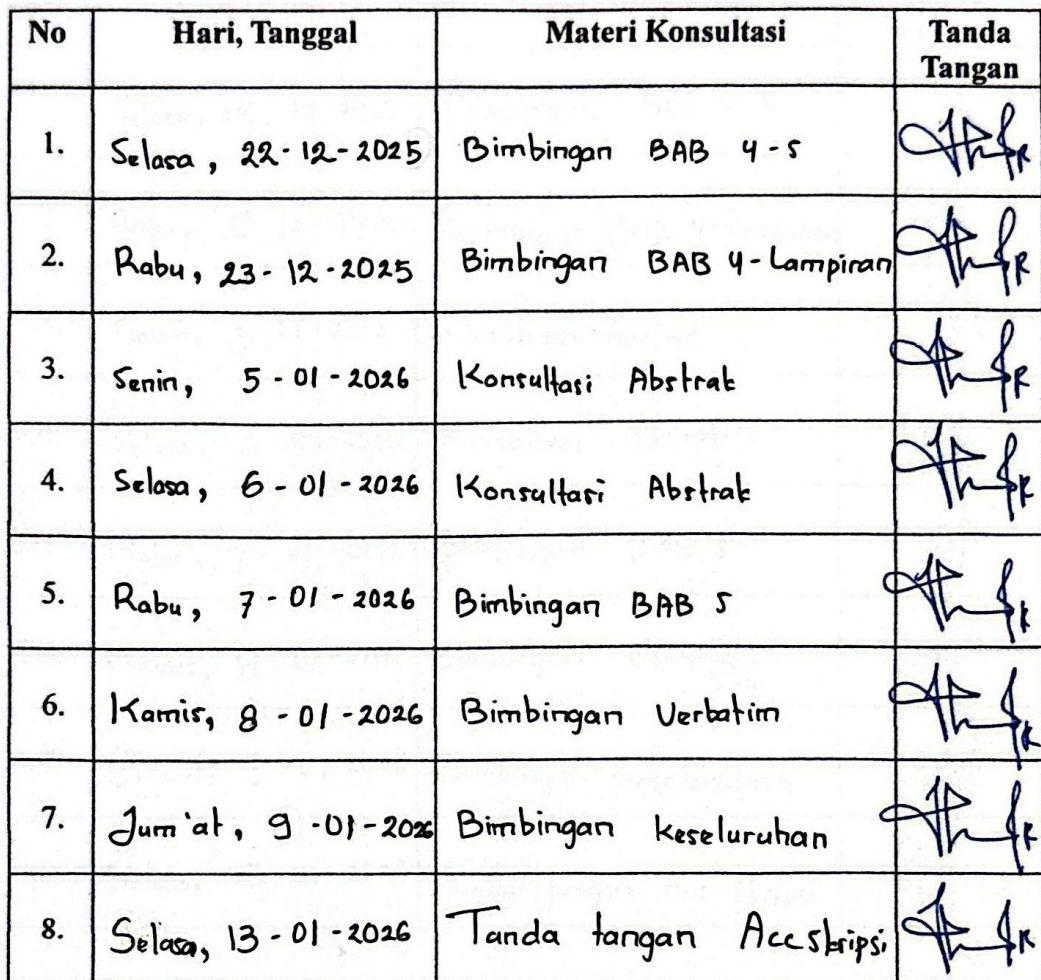 No Hari, Tanggal Materi Konsultasi Tanda Tangan
1. Selasa, 22-12-2025 Bimbingan BAB 4-5
2. Rabu, 23-12-2025 Bimbingan BAB 4-Lampiran
3. Senin, 5-01-2026 Konsultasi Abstrak
4. Selasa, 6-01-2026 Konsultasi Abstrak
5. Rabu, 7-01-2026 Bimbingan BAB 5
6. Kamis, 8-01-2026 Bimbingan Verbatim
7. Jum'at, 9-01-2026 Bimbingan Keseluruhan
8. Selasa, 13-01-2026 Tanda tangan Acc Skripsi